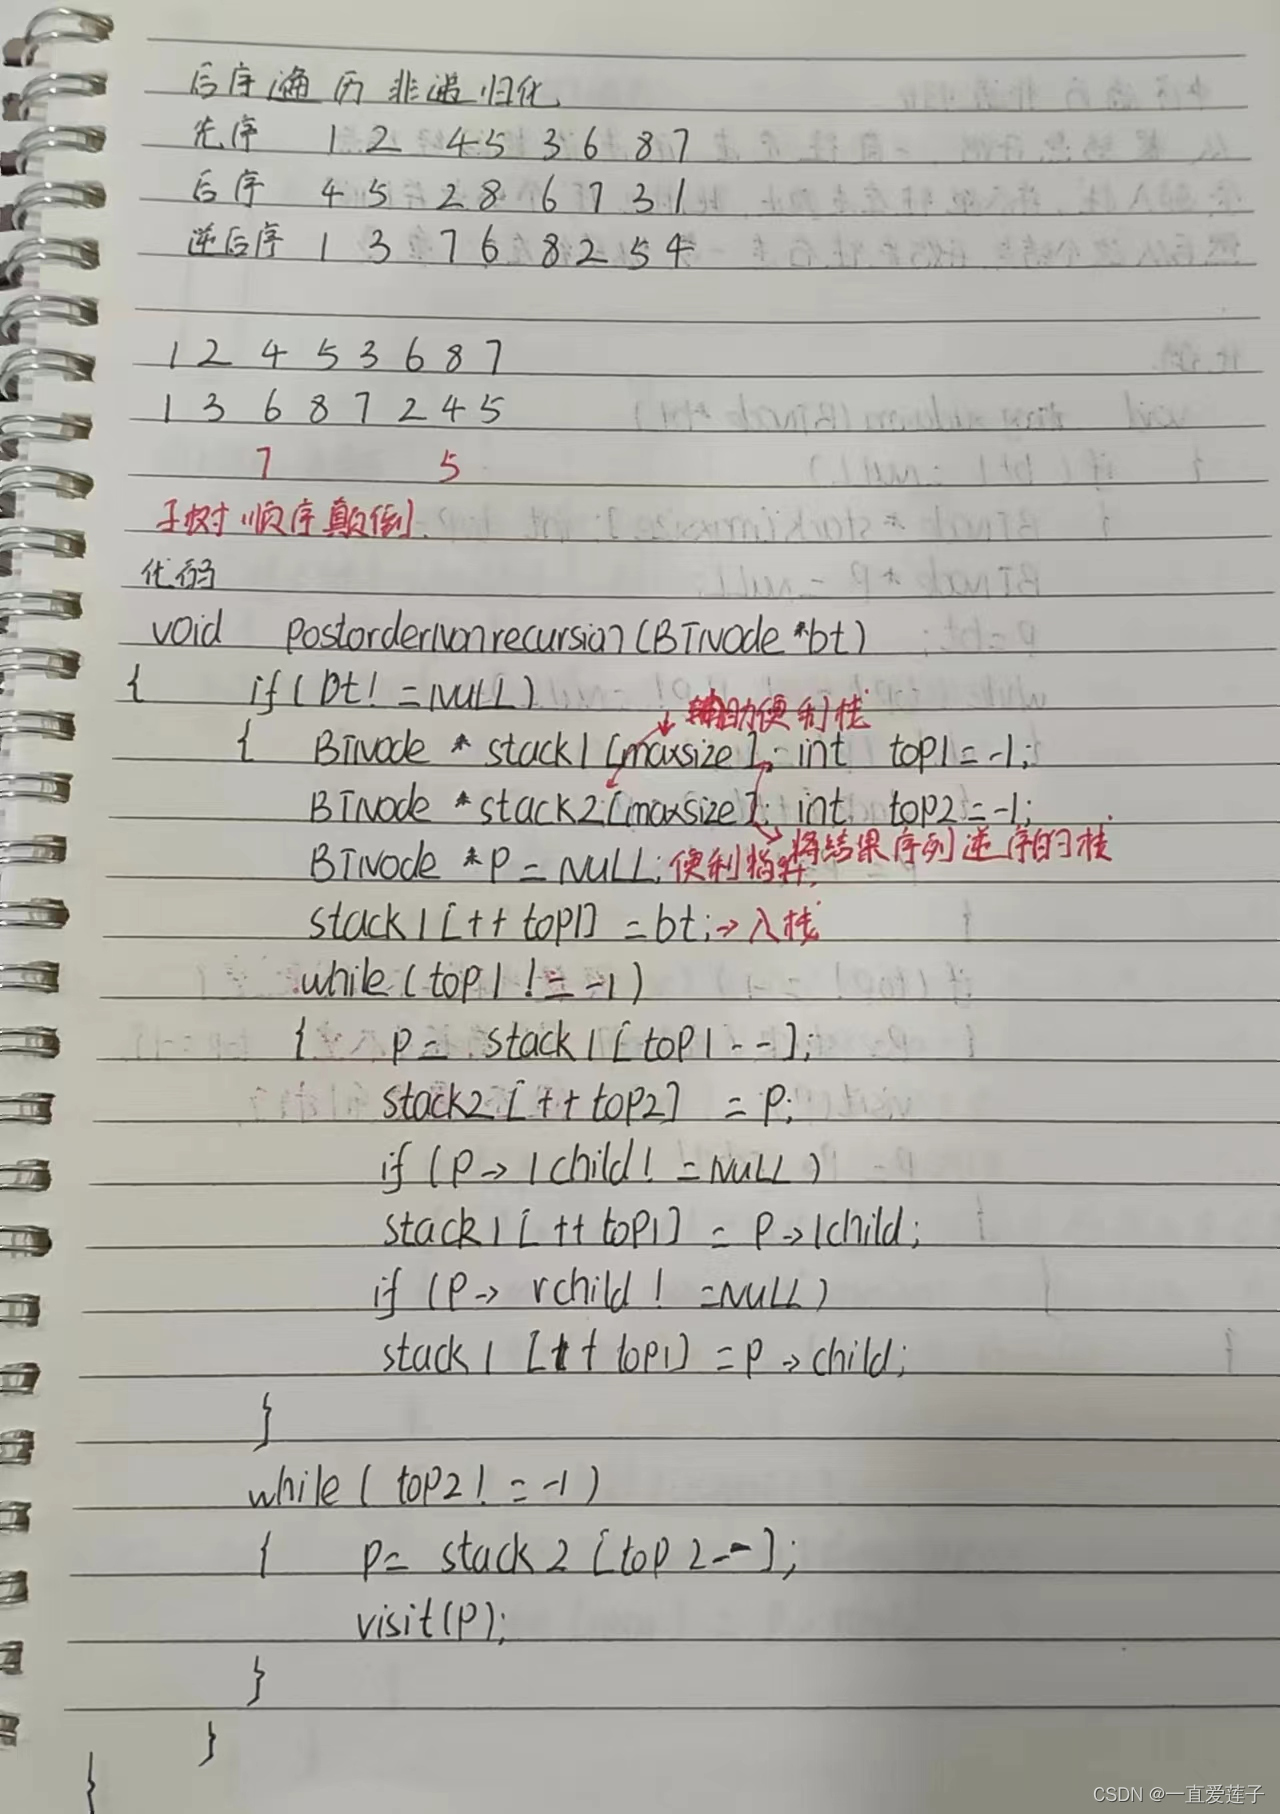 后序遍历非递归化
先序 1 2 4 5 3 6 8 7
后序 4 5 2 8 6 7 3 1
逆后序 1 3 7 6 8 2 5 4
1 2 4 5 3 6 8 7
1 3 6 8 7 2 4 5
7 5
子树顺序颠倒
代码
void postordernonrecursion(BTNode *bt)
{ if(bt!=NULL)
辅助便利栈
{ BTNode * stack1[maxsize]; int top1=-1;
BTNode *stack2[maxsize]; int top2=-1;
将结果序列逆序的栈
BTNode *p=NULL; 便利指针
stack1[++top1]=bt;→入栈
while(top1!=-1)
{ p= stack1[top1--];
stack2[++top2] =p;
if(p->lchild!=NULL)
stack1[++top1] = p->lchild;
if (p-> rchild! =NULL)
stack1 [++top1] =p->child;
}
while( top2!=-1)
{ p= stack2[top2--];
visit(p);
}
}
}
CSDN @一直爱莲子